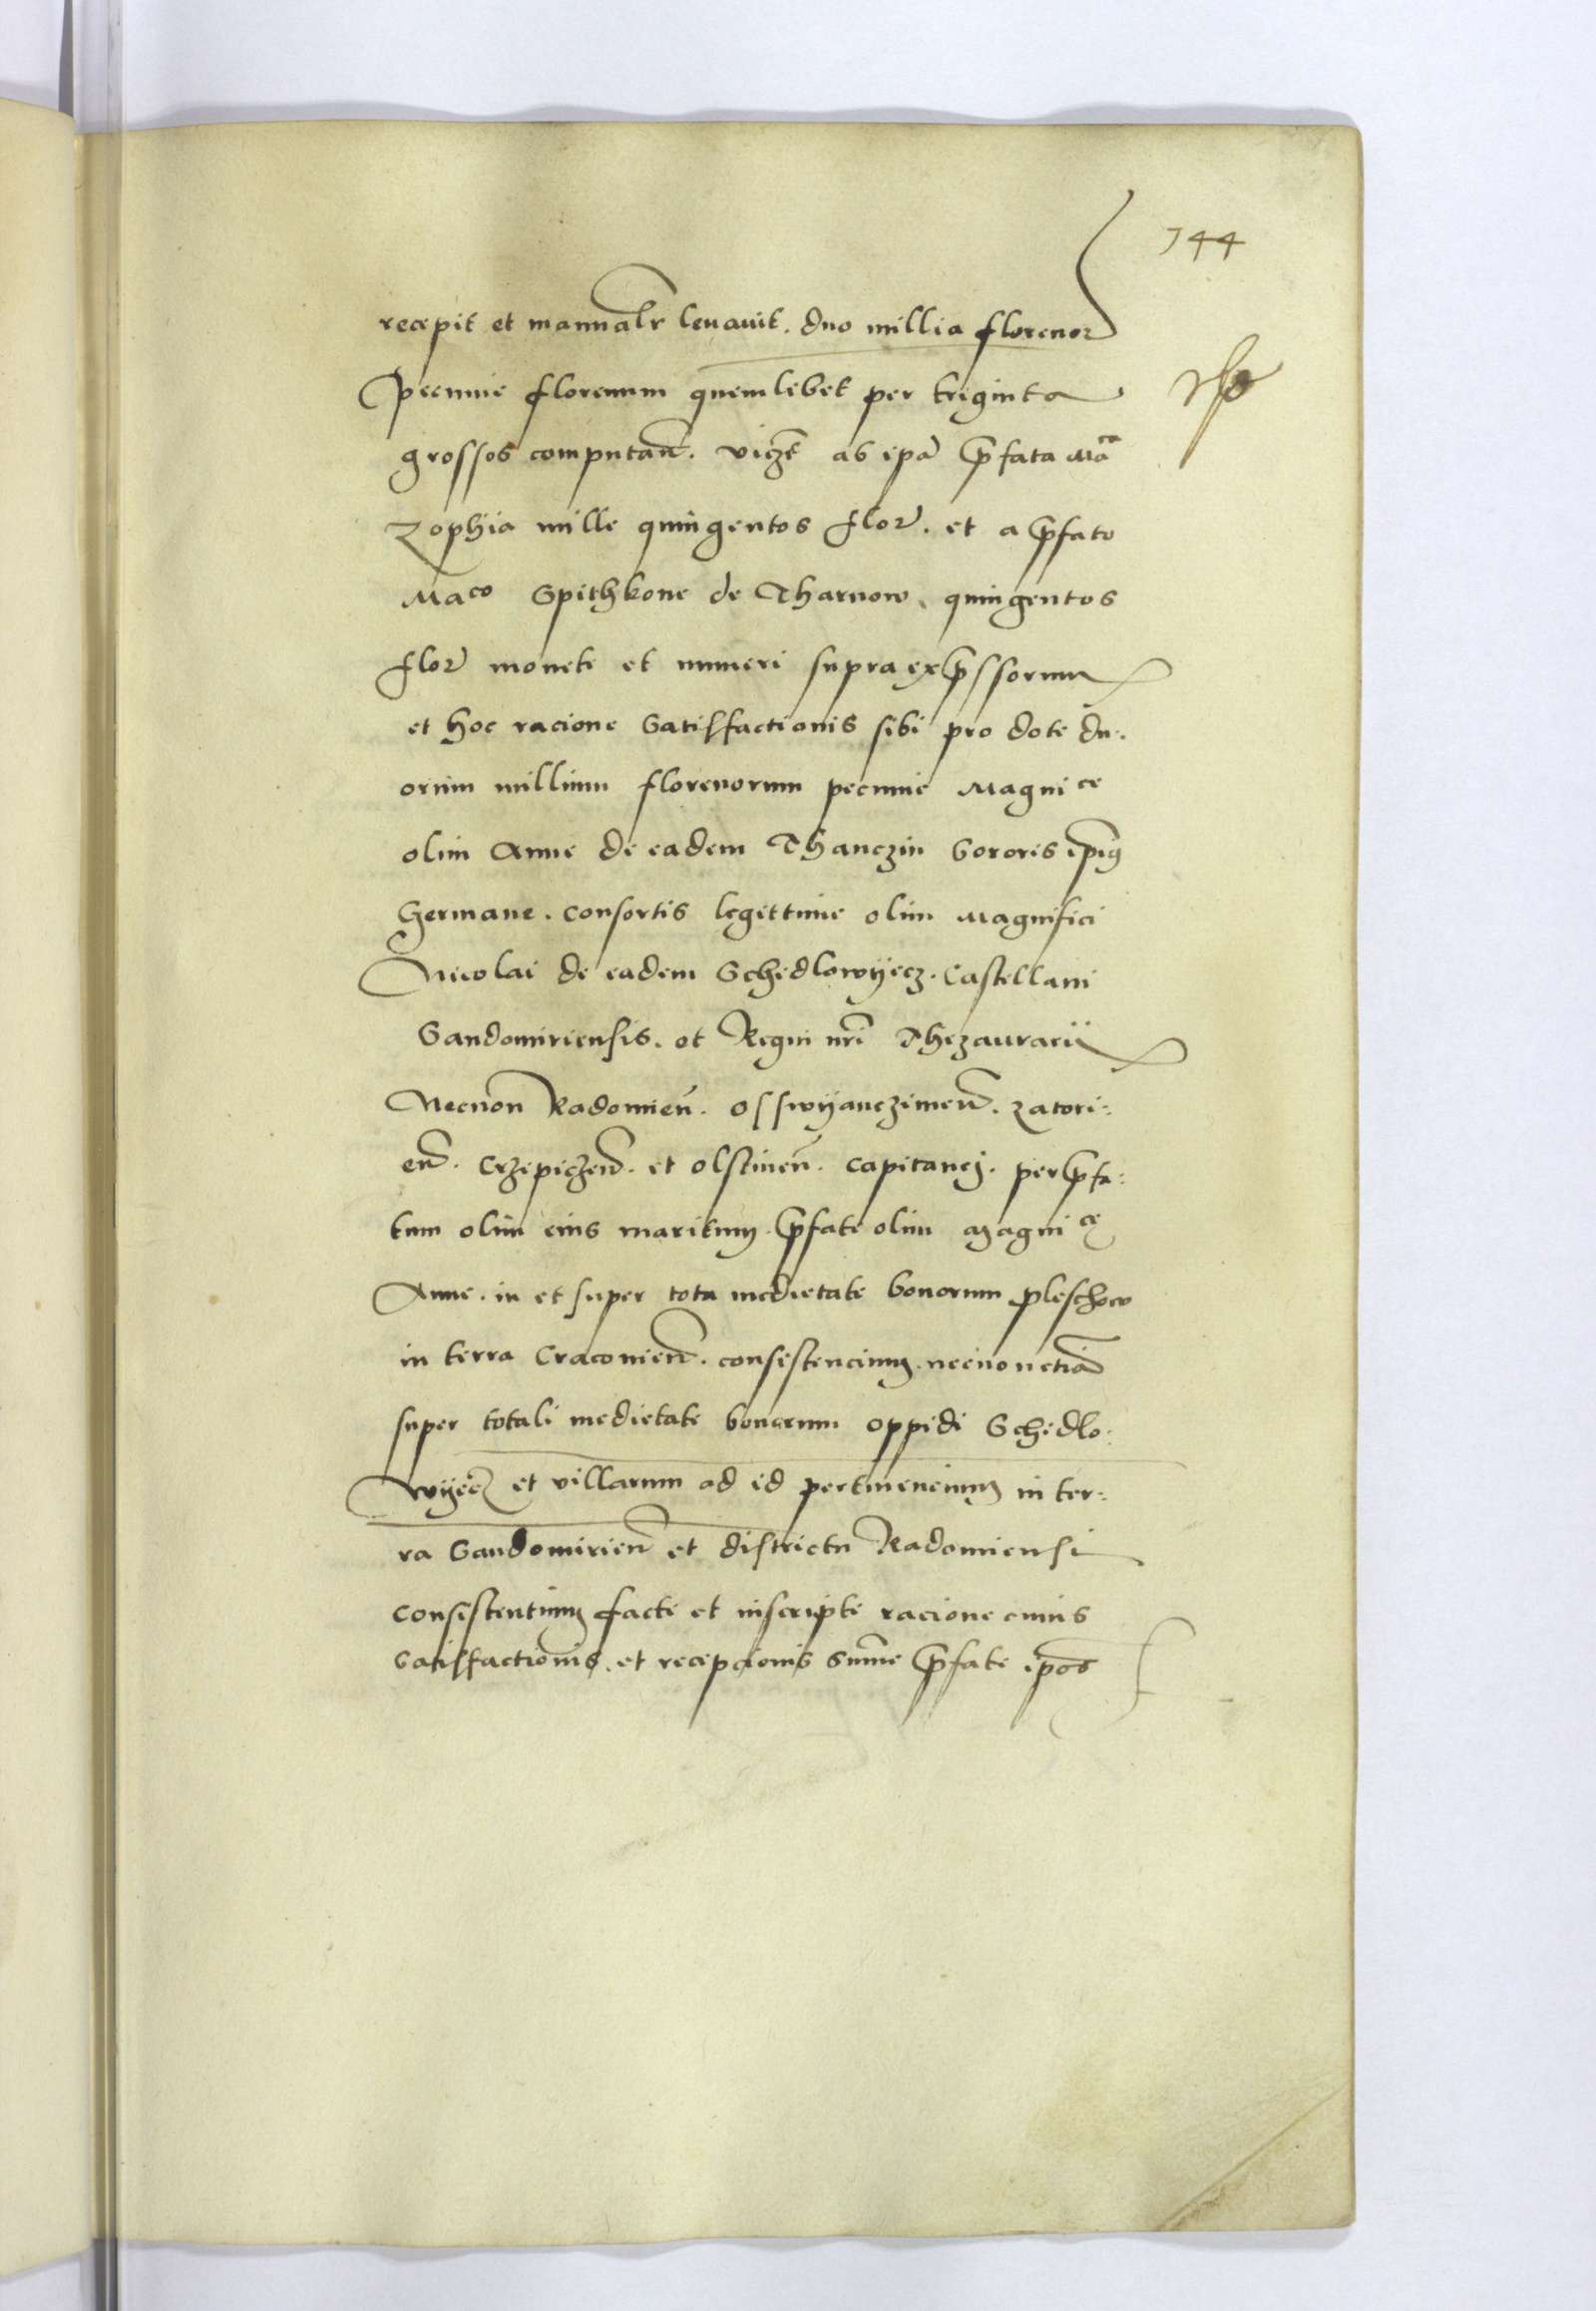 144
recepit et manualr levavit. duo millia florenor
pecunie florenum quemlibet per triginta
grossos computan. vicz ab ipa pfata Maca
Zophia mille quingentos flor. et a pfato
Maco Spithkone de Tharnow. quingentos
flor monete et numeri supra expssorum
et hoc racione Satisfactionis sibi pro dote du.
orum millium florenorum pecunie Magnice
olim Anne de eadem Thanczin Sororis ipius
Germane. consortis legittime olim Magnifici
Nicolai de eadem Schedlowyecz. Castellani
Sandomiriensis. et Regni nri Thezaurarii
Necnon Radomien. Osswyanczimen. zatori:
en. Crzepiczen. et olstinen. capitanej. per pfa:
tum olim eius maritum. pfate olim Magnice
Anne. in et super tota medietate bonorum pleschow
in terra Craconien. consistencium. necnon etia
super totali medietate bonorum oppidi Schedlo:
wyecz et villarum ad id pertinencium in ter:
ra Sandomirien et districtu Radomiensi
consistentium facte et inscripte racione cuius
Satisfactionis. et recepcionis Summe pfate